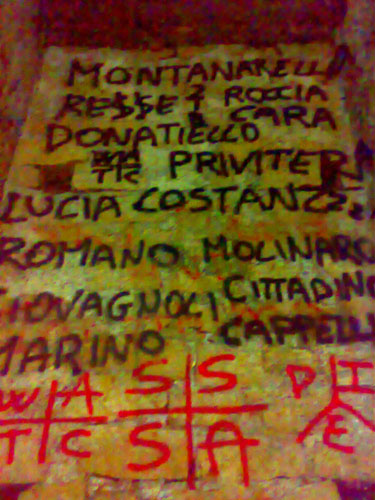 MONTANARELLA
RESSE ROCCIA
CARA
DONATIELLO
WA
TC PRIVITERA
LUCIA COSTANZ
ROMANO MOLINARO
GIOVAGNOLI CITTADINO
MARINO CAPPELL
W A S S D I
T C S A E